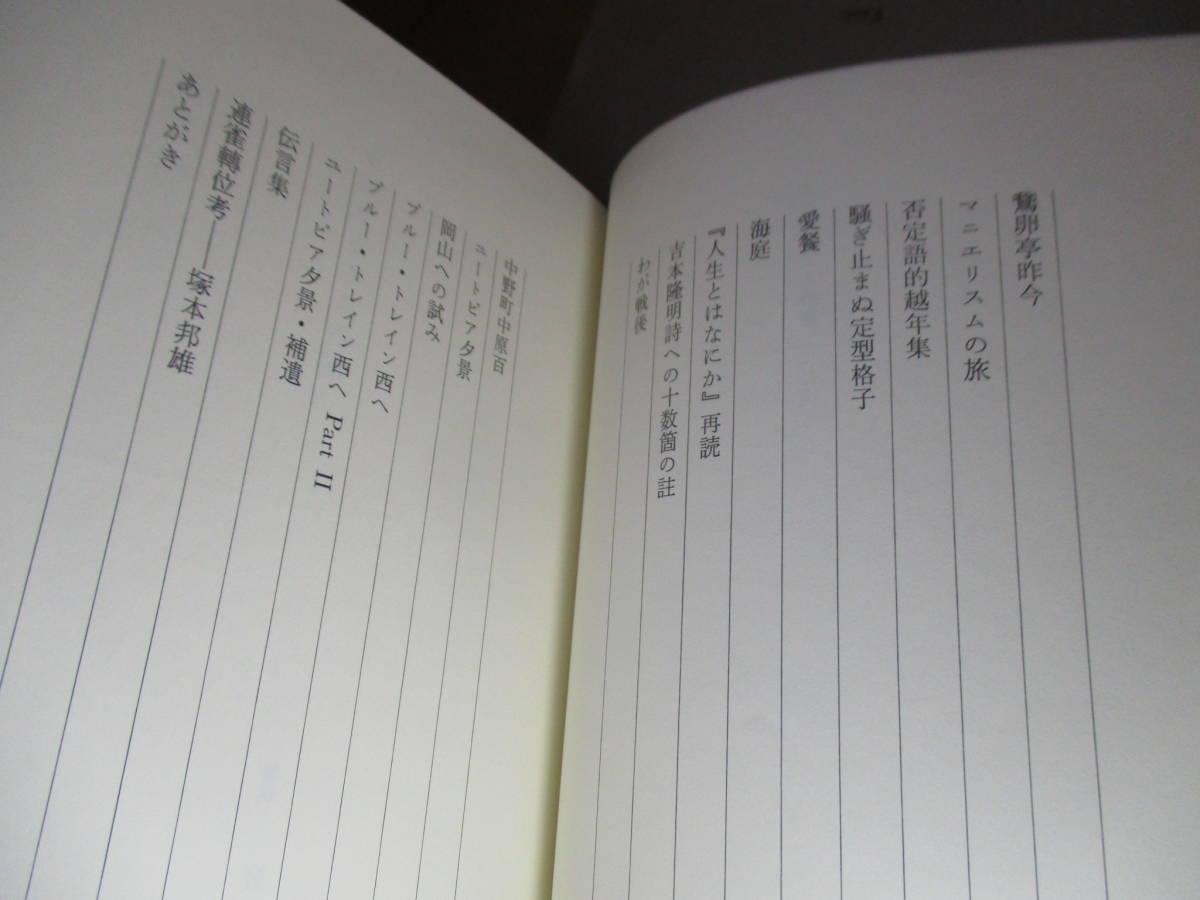 鵞卵亭昨今
マニエリスムの旅
否定語的越年集
騒ぎ止まぬ定型格子
愛餐
海庭
『人生とはなにか』再読
吉本隆明詩への十数箇の註
わが戦後
中野町中原百
ユートピア夕景
岡山への試み
ブルー・トレイン西へ
ブルー・トレイン西へ Part II
ユートピア夕景・補遺
伝言集
連雀轉位考――塚本邦雄
あとがき